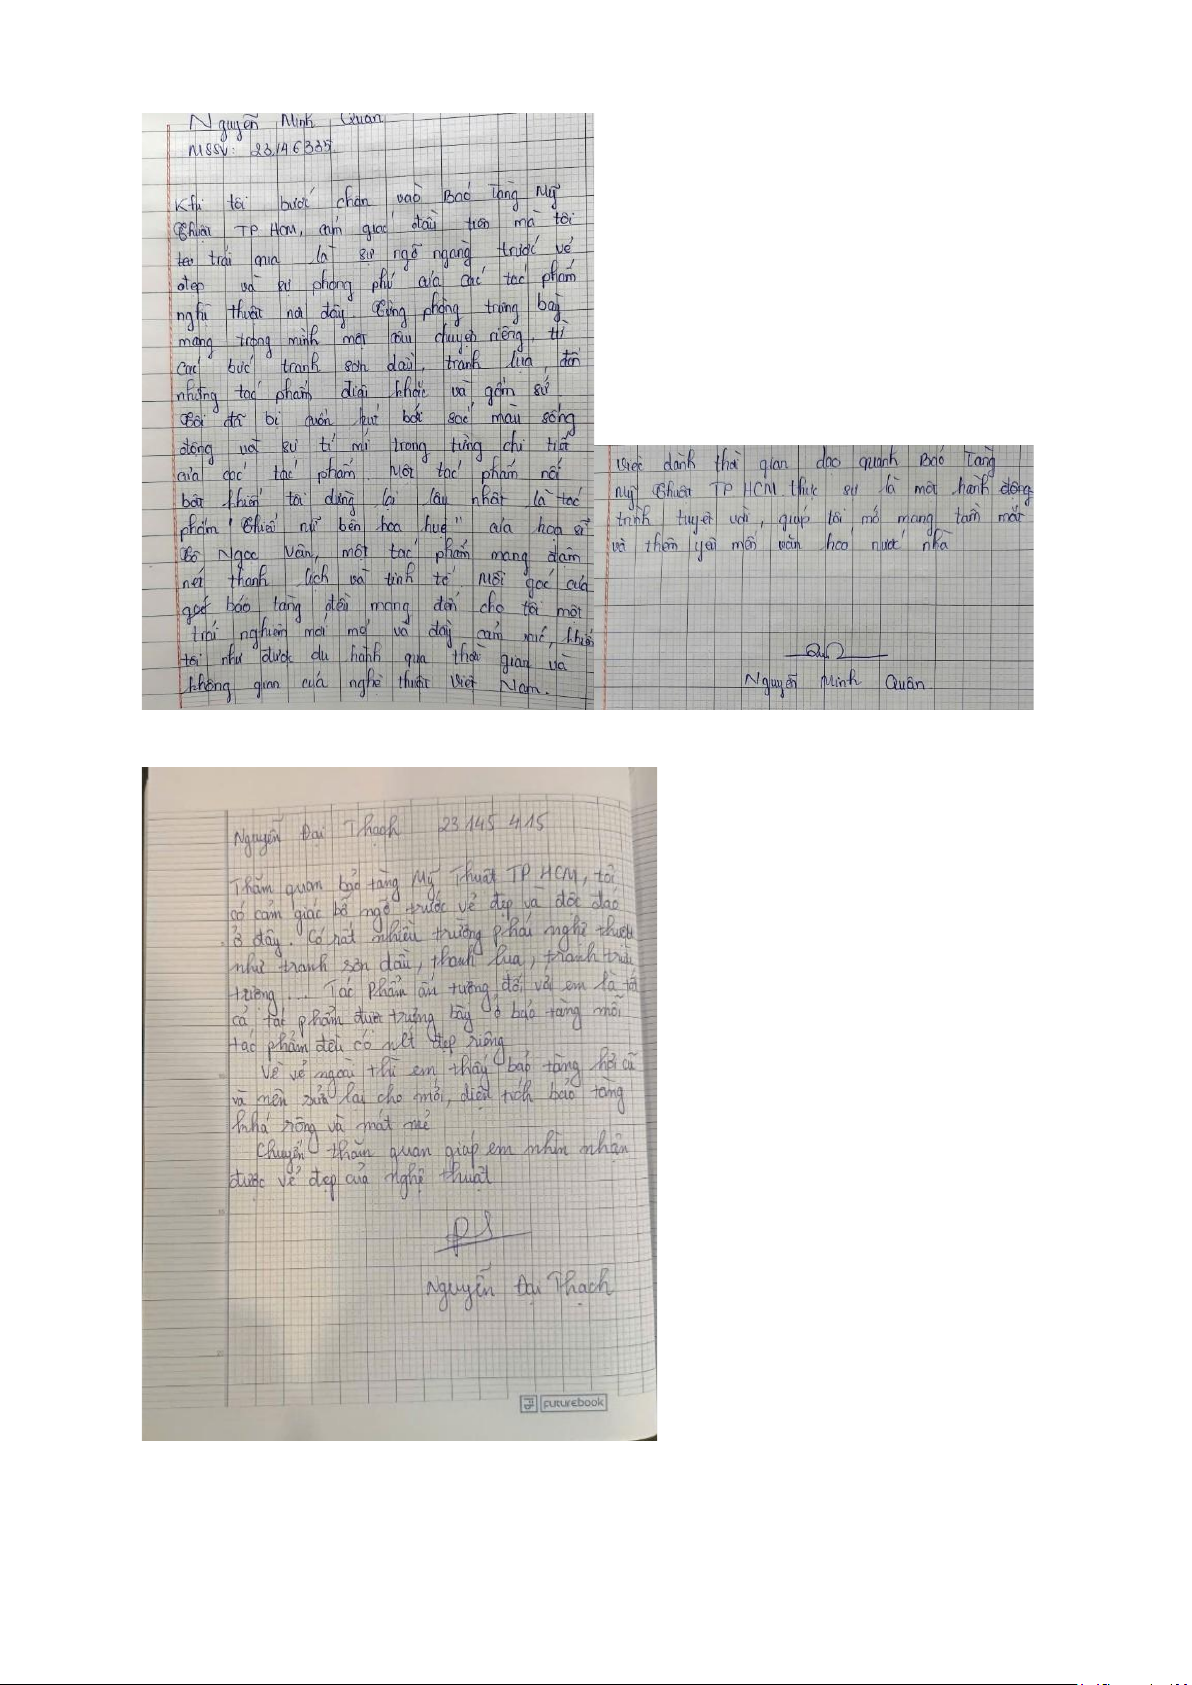 Nguyễn Minh Quân
MSSV: 23146335
Khi tôi bước chân vào Bảo Tàng Mỹ
Thuật TP HCM, cảm giác đầu tiên mà tôi
trải qua là sự ngỡ ngàng trước vẻ
đẹp và sự phong phú của các tác phẩm
nghệ thuật nơi đây. Từng phòng trưng bày
mang trong mình một câu chuyện riêng, từ
các bức tranh sơn dầu, tranh lụa, đến
những tác phẩm điêu khắc và gốm sứ
Tôi đã bị cuốn hút bởi sắc màu sống
động và sự tỉ mỉ trong từng chi tiết
của các tác phẩm. Một tác phẩm nổi
bật khiến tôi dừng lại lâu nhất là tác
phẩm "Thiếu nữ bên hoa huệ" của họa sĩ
Tô Ngọc Vân, một tác phẩm mang đậm
nét thanh lịch và tinh tế. Mỗi góc của
bảo tàng đều mang đến cho tôi một
trải nghiệm mới mẻ và đầy cảm xúc, khiến
tôi như được du hành qua thời gian và
không gian của nghệ thuật Việt Nam.
Việc dành thời gian dạo quanh Bảo Tàng
Mỹ Thuật TP HCM thực sự là một hành động
trình tuyệt vời, giúp tôi mở mang tầm mắt
và thêm yêu mến văn hoá nước nhà
Nguyễn Minh Quân
Nguyễn Đại Thạch 23145415
Thăm quan bảo tàng Mỹ Thuật TP HCM, tôi
có cảm giác bỡ ngỡ trước vẻ đẹp và độc đáo
ở đây. Có rất nhiều trường phái nghệ thuật
như tranh sơn dầu, thanh lụa, tranh trừu
tượng ... Tác phẩm ấn tượng đối với em là tất
cả tác phẩm được trưng bày ở bảo tàng mỗi
tác phẩm đều có nét đẹp riêng
Về vẻ ngoài thì em thấy bảo tàng hơi cũ
và nên sửa lại cho mới, diện tích bảo tàng
khá rộng và mát mẻ
Chuyến thăm quan giúp em nhìn nhận
được vẻ đẹp của nghệ thuật
Nguyễn Đại Thạch
futurebook